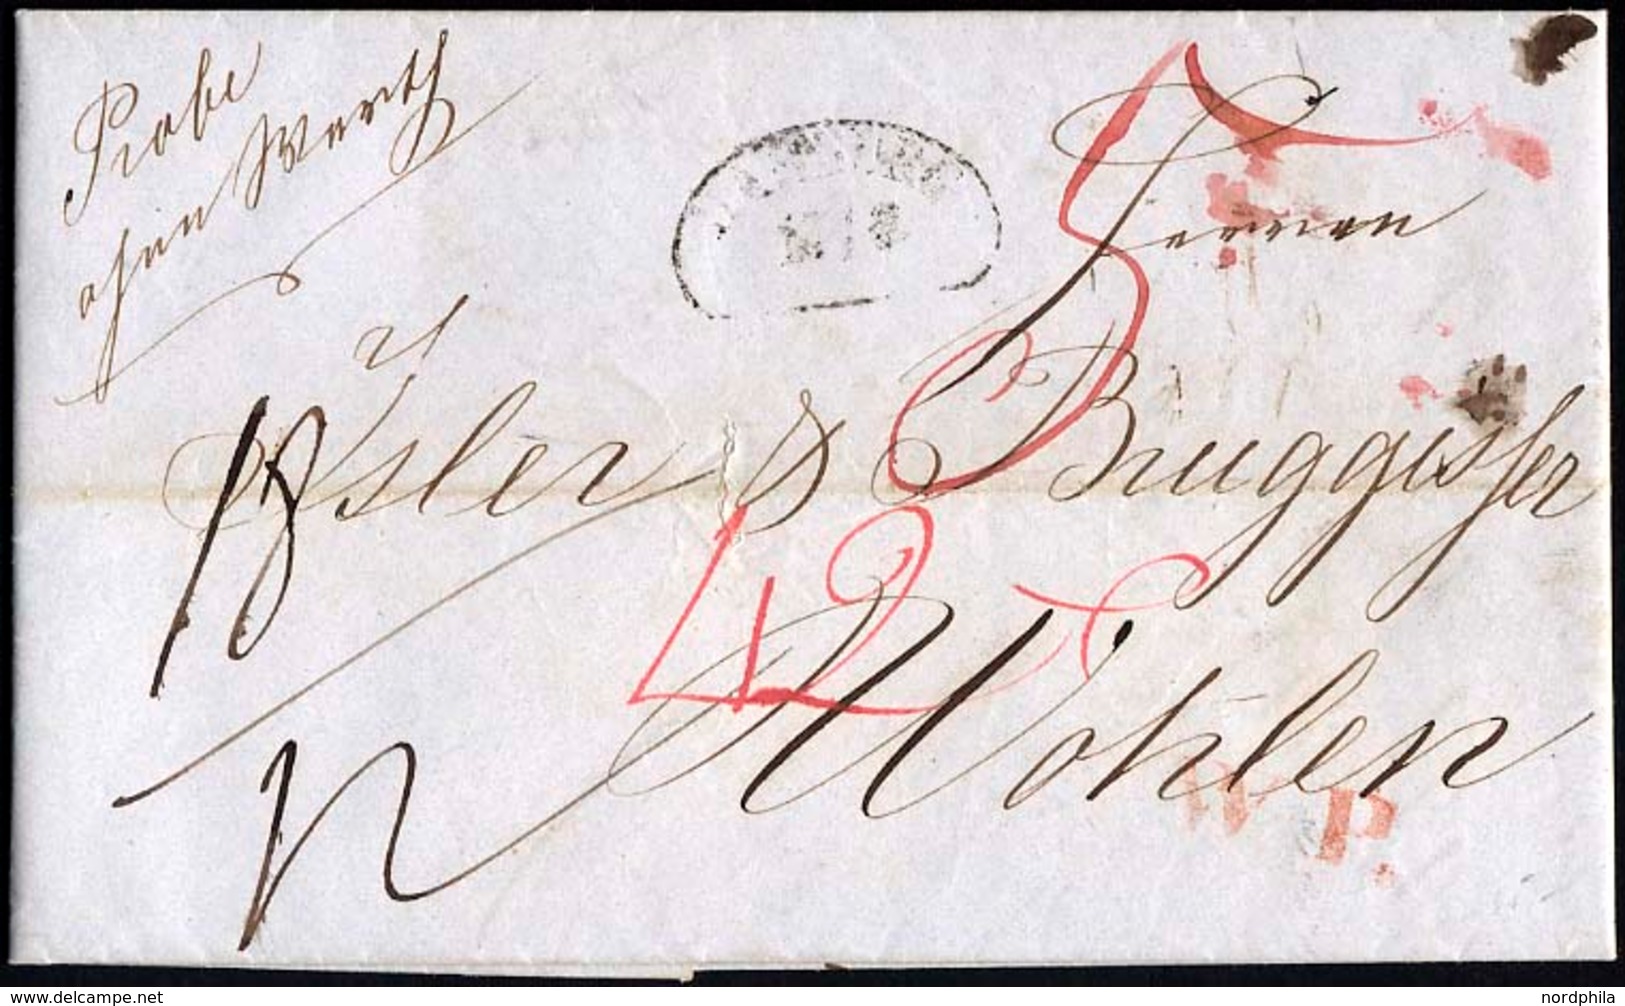 Probe
ohne Werth
Herren
Isler & Bruggisser
Wohlen
42
W P.
delcampe.net
nordphila